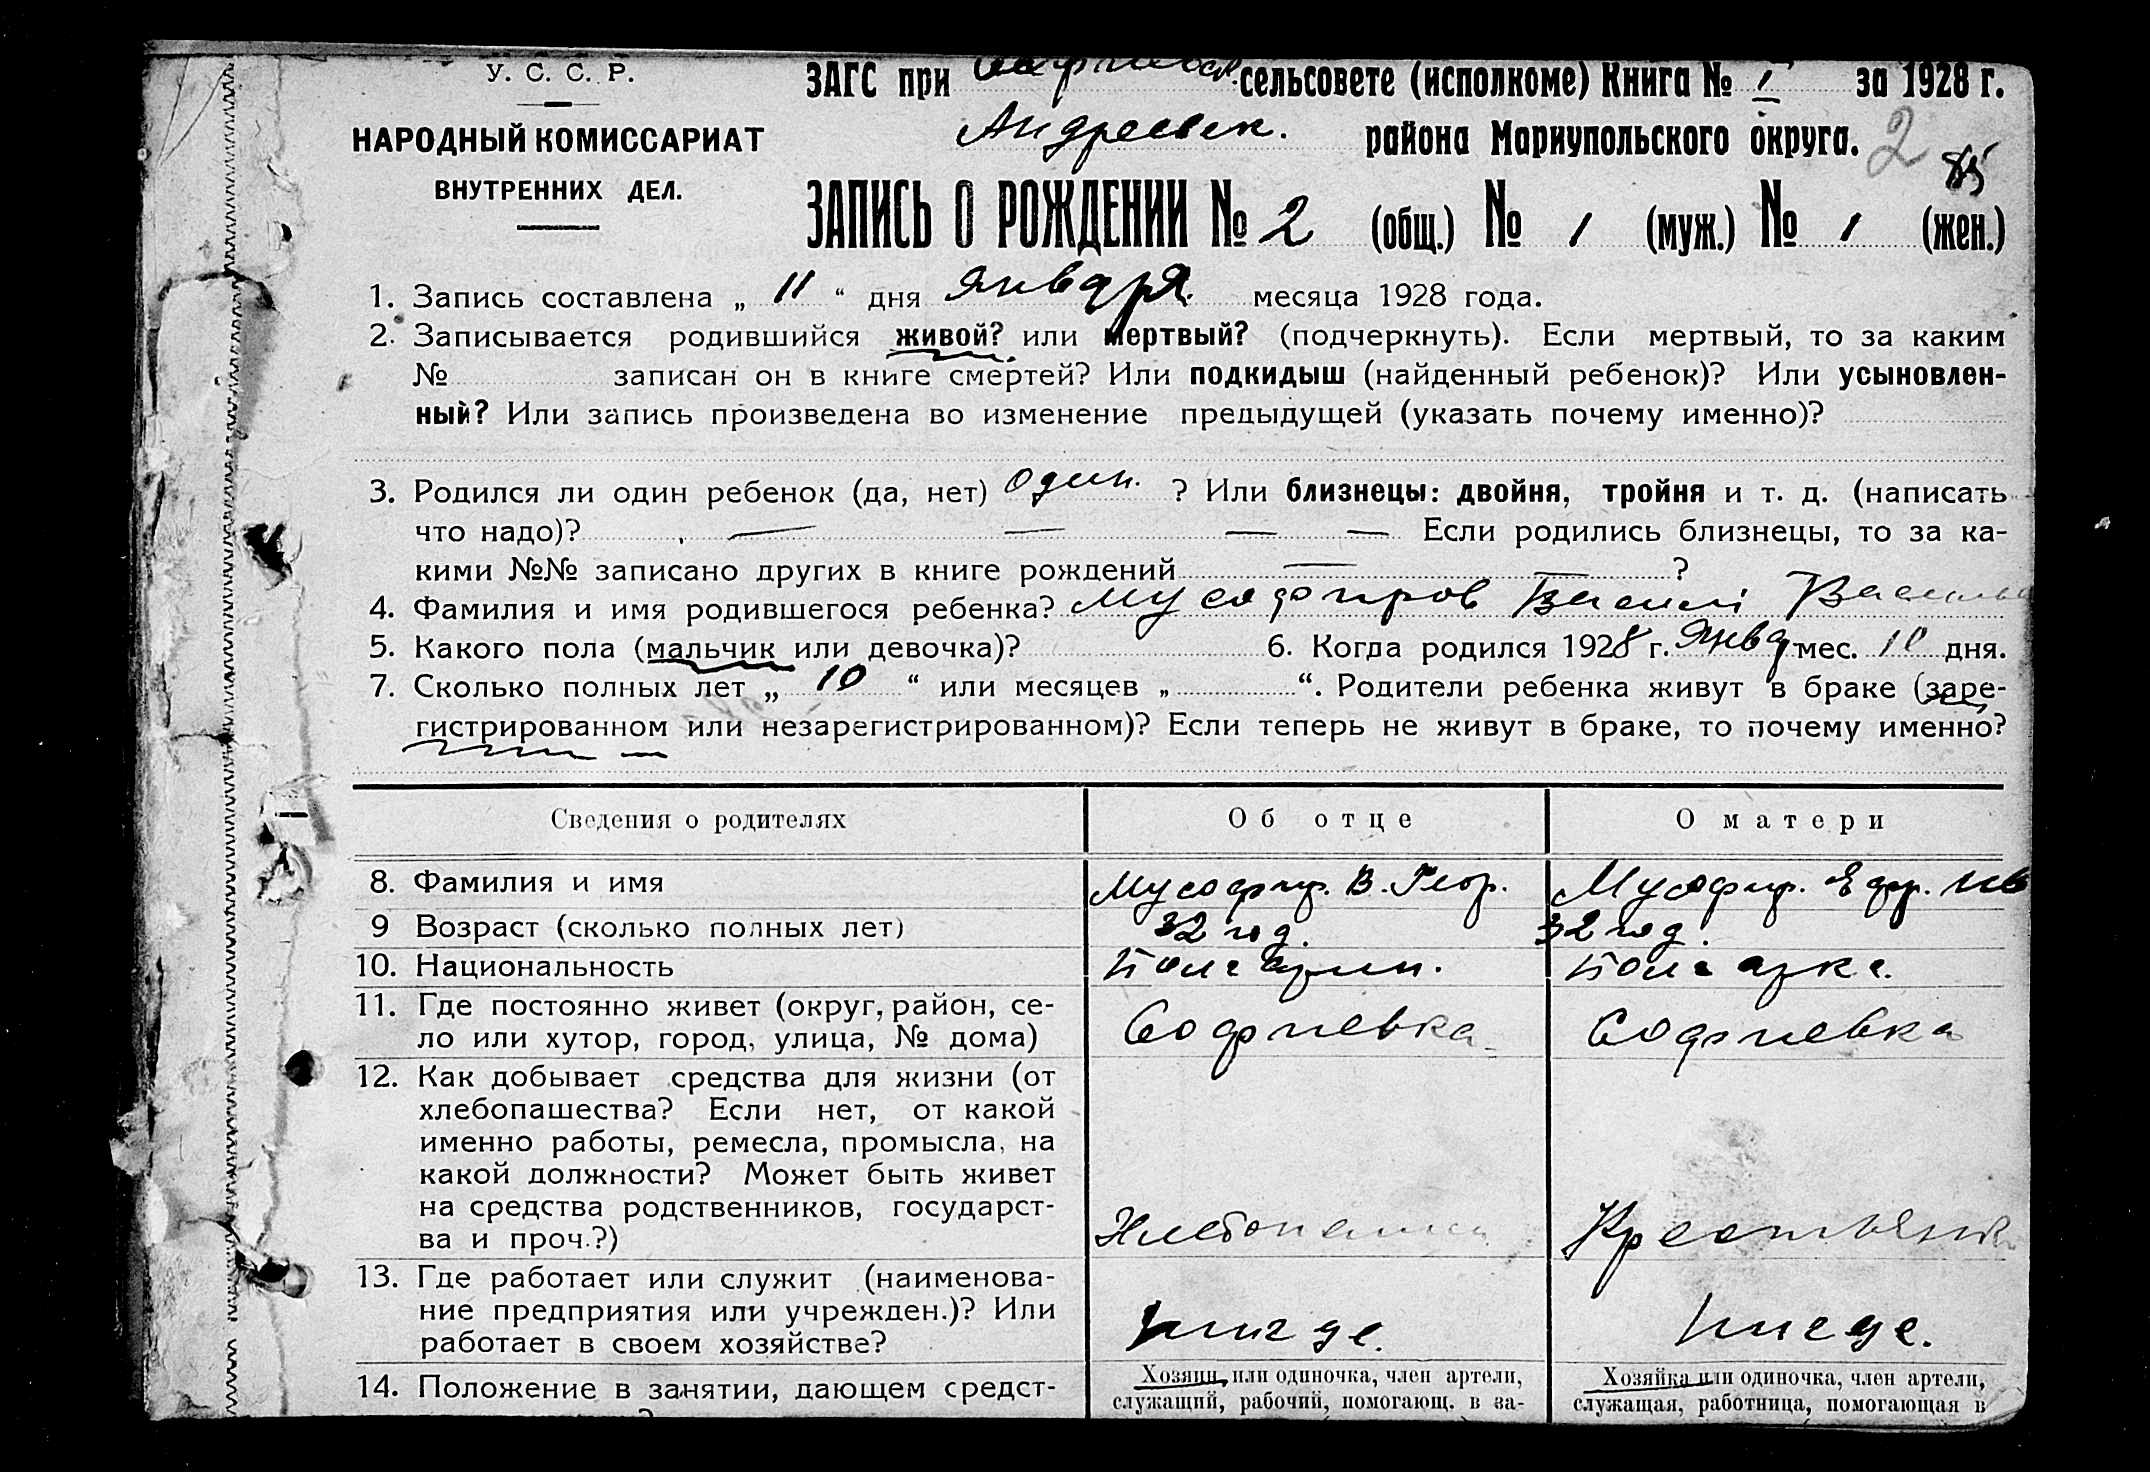 У. С. С. Р.
НАРОДНЫЙ КОМИССАРИАТ
ВНУТРЕННИХ ДЕЛ.
ЗАГС при Софиевск. сельсовете (исполкоме) Книга № I за 1928 г.
Андреевск. района Мариупольского округа. 2
85
ЗАПИСЬ О РОЖДЕНИИ № 2 (общ.) № 1 (муж.) № 1 (жен.)
1. Запись составлена „ 11 “ дня января месяца 1928 года.
2. Записывается родившийся живой? или мертвый? (подчеркнуть). Если мертвый, то за каким
№ записан он в книге смертей? Или подкидыш (найденный ребенок)? Или усыновлен-
ный? Или запись произведена во изменение предыдущей (указать почему именно)?
3. Родился ли один ребенок (да, нет) один. ? Или близнецы: двойня, тройня и т. д. (написать
что надо)? — — — — Если родились близнецы, то за ка-
кими №№ записано других в книге рождений — — ?
4. Фамилия и имя родившегося ребенка? Мусофиров Васили Василь
5. Какого пола (мальчик или девочка)? 6. Когда родился 1928 г. янва мес. 10 дня.
7. Сколько полных лет „ 10 “ или месяцев „ “. Родители ребенка живут в браке (заре-
гистрированном или незарегистрированном)? Если теперь не живут в браке, то почему именно?
Сведения о родителях Об отце О матери
8. Фамилия и имя Мусофир. В. Геор. Мусофир. Ефр. Ив
9 Возраст (сколько полных лет) 32 год. 32 год.
10. Национальность Болгарин. Болгарка.
11. Где постоянно живет (округ, район, се-
ло или хутор, город, улица, № дома) Софиевка Софиевка
12. Как добывает средства для жизни (от
хлебопашества? Если нет, от какой
именно работы, ремесла, промысла, на
какой должности? Может быть живет
на средства родственников, государст-
ва и проч.?) Хлебопашец Крестьянк
13. Где работает или служит (наименова-
ние предприятия или учрежден.)? Или
работает в своем хозяйстве? нигде. нигде.
14. Положение в занятии, дающем средст-
Хозяин или одиночка, член артели,
служащий, рабочий, помогающ. в за-
Хозяйка или одиночка, член артели,
служащая, работница, помогающая в